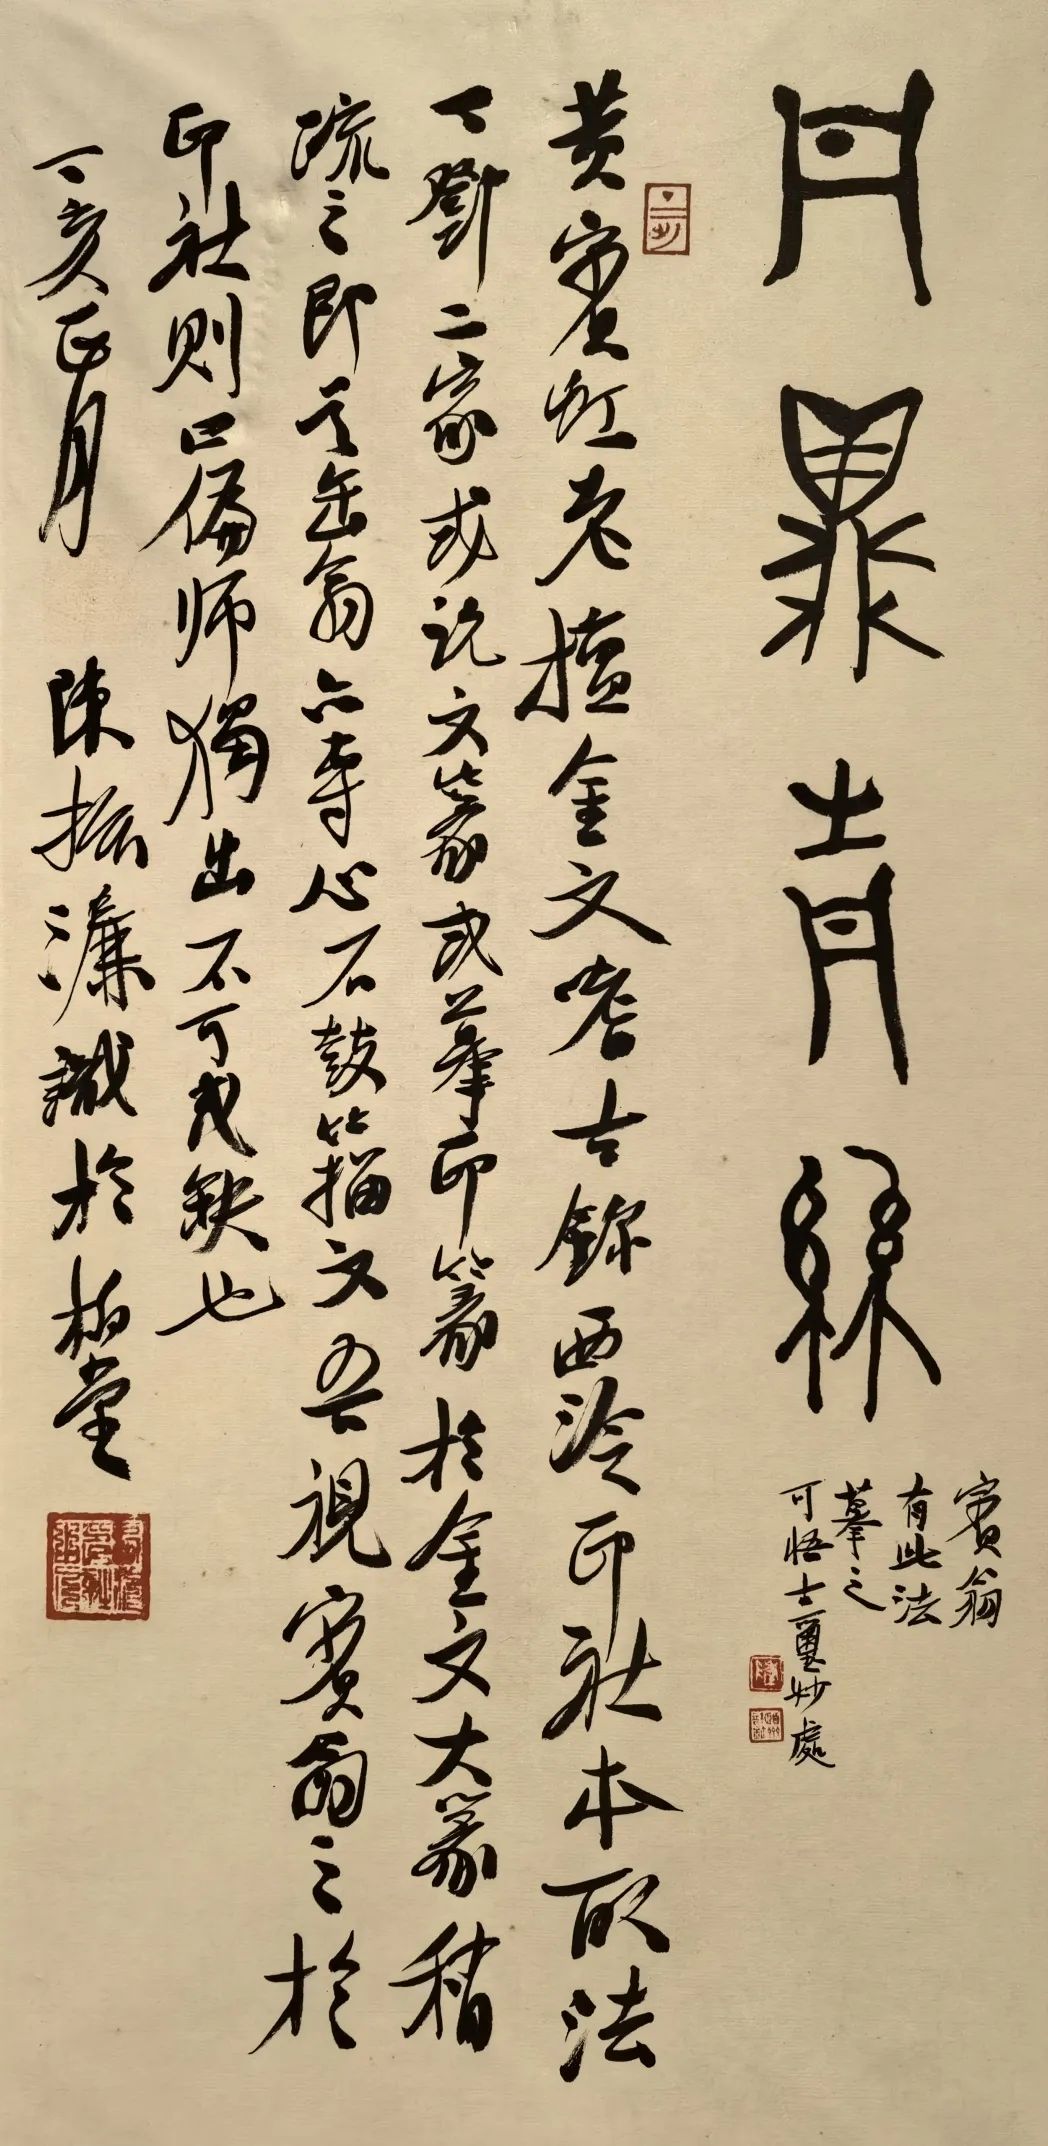 丹青絲
賓翁
有此法
摹之
可悟古璽妙處
黄賓虹老擅金文嗜古鉨西泠印社本取法
丁鄧二家或説文篆或摹印篆於金文大篆稍
疏之即言缶翁亦専心石鼓籀文吾視賓翁之於
印社则曰偏师獨出不可或缺也
丁亥正月 陳振濂識於柏堂